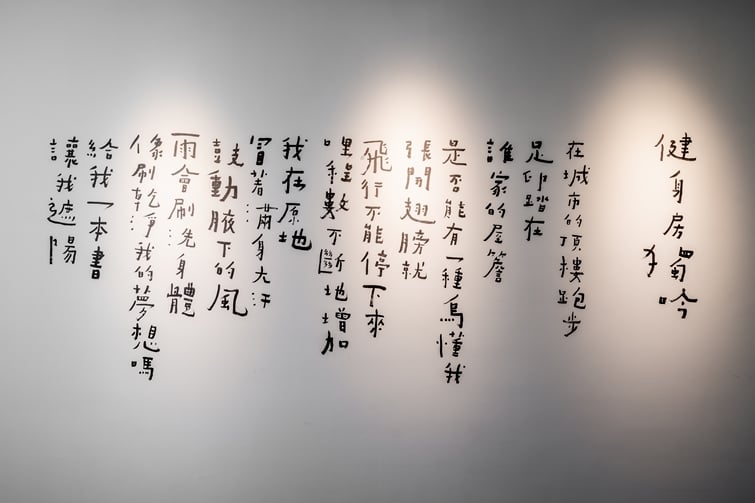 健身房獨吟
在城市的頂樓跑步
足印踏在
誰家的屋簷
是否能有一種鳥懂我
張開翅膀就
飛行不能停下來
哩程數不斷地增加
我在原地
冒著滿身大汗
鼓動腋下的風
雨會刷洗身體
像刷乾淨我的夢想嗎
給我一本書
讓我遮陽